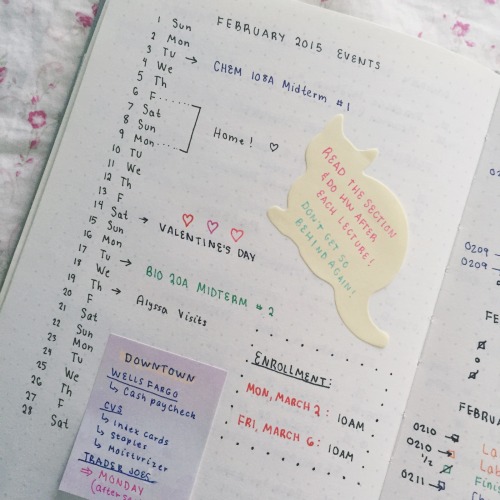 FEBRUARY 2015 EVENTS
1 Sun
2 Mon
3 Tu → CHEM 108A Midterm #1
4 We
5 Th
6 F
7 Sat
8 Sun Home! ♡
9 Mon
10 Tu
11 We
12 Th
13 F
14 Sat → VALENTINE'S DAY
15 Sun
16 Mon
17 Tu → BIO 20A MIDTERM #2
18 We
19 Th → Alyssa Visits
20 F
21 Sat
22 Sun
23 Mon
24 Tu
25 We
26 Th
27 F
28 Sat
READ THE SECTION
& DO HW AFTER
EACH LECTURE!
DON'T GET SO
BEHIND AGAIN!
ENROLLMENT:
MON, MARCH 2: 10AM
FRI, MARCH 6: 10AM
DOWNTOWN
WELLS FARGO
↳ Cash paycheck
CVS
↳ Index cards
↳ Staples
↳ Moisturizer
TRADER JOES
⇒ MONDAY
0209
0209
FE
FEBRU
0210
0210
1/2
0211